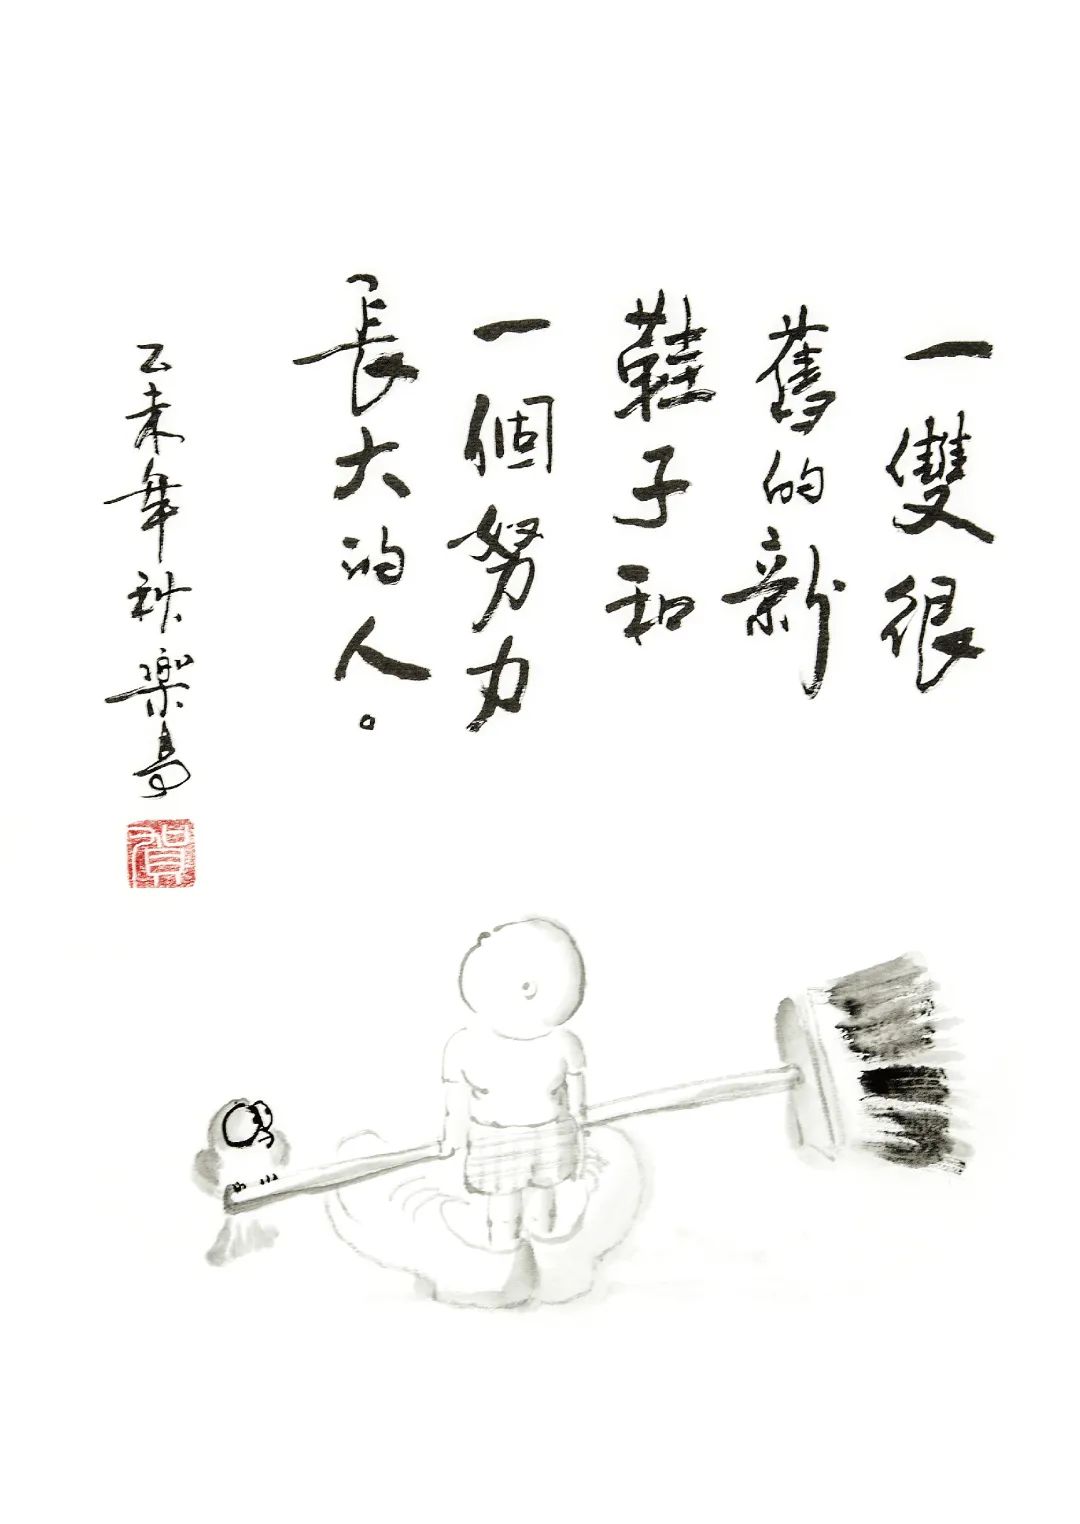 一雙很
舊的新
鞋子和
一個努力
長大的人。
乙未年秋樂鳥
賀